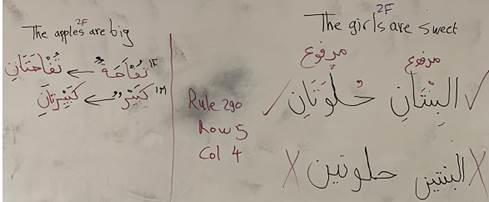 The apples are big
2F
تُفَّاحَةٌ 1F ← تُفَّاحَتَانِ
كَبِيْرٌ 1M ← كَبِيْرَتَانِ
Rule 290
Row 5
Col 4
2F
The girls are sweet
مرفوع مرفوع
✓ البِنْتَانِ حُلْوَتَانِ ✓
X البنتين حلوتين X